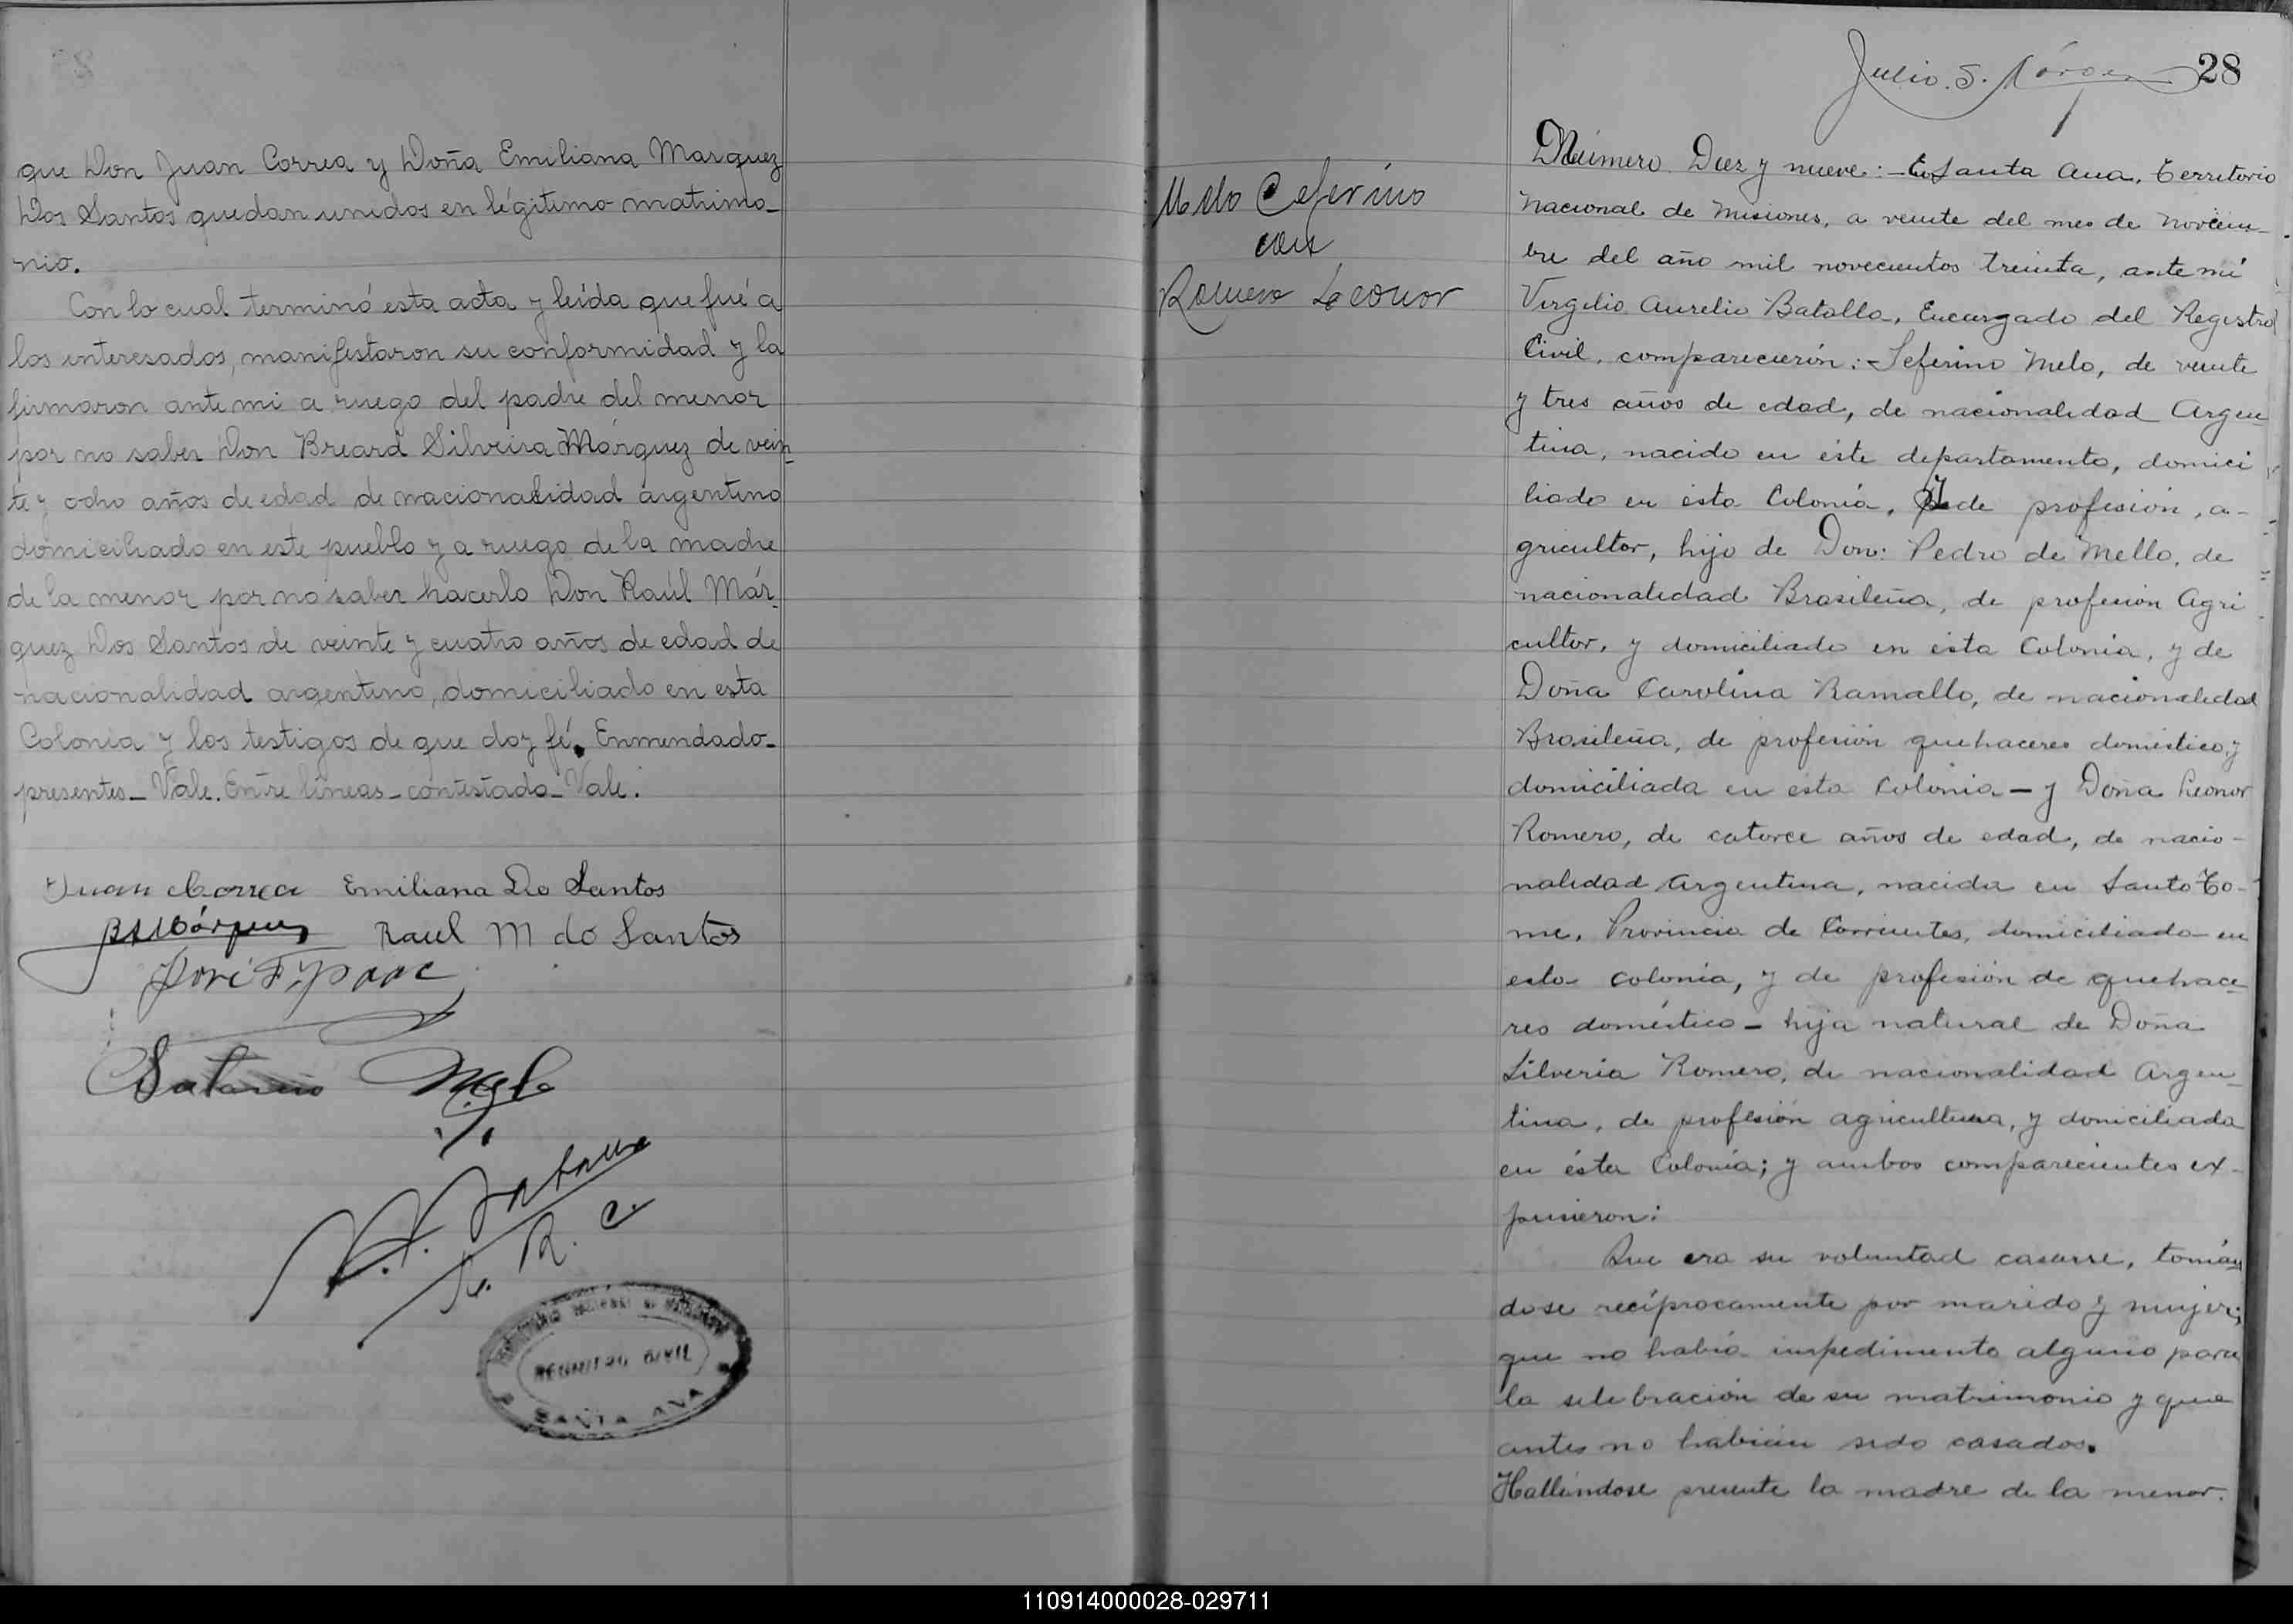 que Don Juan Correa y Doña Emiliana Marquez
Dos Santos quedan unidos en légitimo matrimo-
nio.
Con lo cual terminó esta acta y leída que fué a
los interesados, manifestaron su conformidad y la
firmaron ante mi a ruego del padre del menor
por no saber Don Breard Silveira Márquez de vein-
te y ocho años de edad de nacionalidad argentino
domiciliado en este pueblo y a ruego de la madre
de la menor por no saber hacerlo Don Raúl Már-
quez Dos Santos de veinte y cuatro años de edad de
nacionalidad argentino, domiciliado en esta
Colonia y los testigos de que doy fé. Enmendado-
presentes- Vale. Entre líneas-contestado-Vale.
Juan Correa Emiliana Do Santos
Raul M do Santos
Melo
R. C.
REGISTRO CIVIL
SANTA ANA
Julio S. 28
Mello Ceferino
con
Romero Leonor
Número Diez y nueve:- En Santa Ana, Territorio
Nacional de Misiones, a veinte del mes de Noviem-
bre del año mil novecientos treinta, ante mí
Virgilio Aurelio Batalla, Encargado del Registro
Civil, comparecierón:- Seferino Melo, de veinte
y tres años de edad, de nacionalidad Argen-
tina, nacido en éste departamento, domici
liado en ésta Colonia, y de profesión, a-
gricultor, hijo de Don: Pedro de Mello, de
nacionalidad Brasileña, de profesión Agri
cultor, y domiciliado en ésta Colonia, y de
Doña Carolina Ramallo, de nacionalidad
Brasileña, de profesión quehaceres doméstico, y
domiciliada en ésta Colonia - y Doña Leonor
Romero, de catorce años de edad, de nacio-
nalidad Argentina, nacida en Santo To-
me, Provincia de Corrientes, domiciliada en
esta colonia, y de profesión de quehace-
res doméstico - hija natural de Doña
Silveria Romero, de nacionalidad Argen-
tina, de profesión agricultura, y domiciliada
en ésta Colonia; y ambos comparecientes ex-
pusieron:
Que era su voluntad casarse, tomán
dose recíprocamente por marido y mujer;
que no había impedimento alguno para
la selebración de su matrimonio y que
antes no habían sido casados.
Hallándose presente la madre de la menor.
110914000028-029711